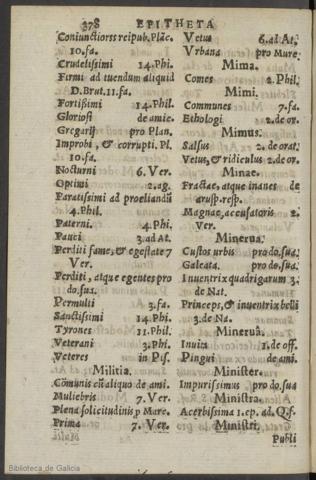 378 EPITHETA
Coniunctiores reipub. Planc.
10. fa.
Crudelissimi 14. Phi.
Firmi ad tuendum aliquid
D. Brut. 11. fa.
Fortißimi 14. Phil.
Gloriosi de amic.
Gregarij pro Plan.
Improbi, & corrupti. Pl.
10. fa.
Nocturni 6. Ver.
Optimi 2. ag.
Paratissimi ad proeliandũ
4. Phil.
Paterni 4. Phi.
Pauci 3. ad At.
Perditi fame, & egestate 7
Ver.
Perditi, atque egentes pro
do. sua.
Permulti 3. fa.
Sanctissimi 14. Phi.
Tyrones 11. Phil.
Veterani 3. Phi.
Veteres in Pis.
Militia.
Cõmunis cũ aliquo de ami.
Muliebris 7. Ver.
Plena solicitudinis p Mare.
Prima 7. Ver.
Vetus 6. ad At.
Vrbana pro Mure
Mima.
Comes 2. Phil.
Mimi.
Communes 7. fa.
Ethologi 2. de or.
Mimus.
Salsus 2. de orat.
Vetus, & ridiculus 2. de or.
Minae.
Fractae, atque inanes de
arusp. resp.
Magnae, accusatoris 2.
Ver.
Minerua.
Custos urbis pro do. sua.
Galeata. pro do. sua.
Inuentrix quadrigarum 3.
de Nat.
Princeps, & inuentrix belli
3. de Na.
Mineruâ.
Inuita 1. de off.
Pingui de ami.
Minister.
Impurissimus pro do. sua
Ministra.
Acerbissima 1. ep. ad. Q. f.
Ministri.
Publi
Biblioteca de Galicia